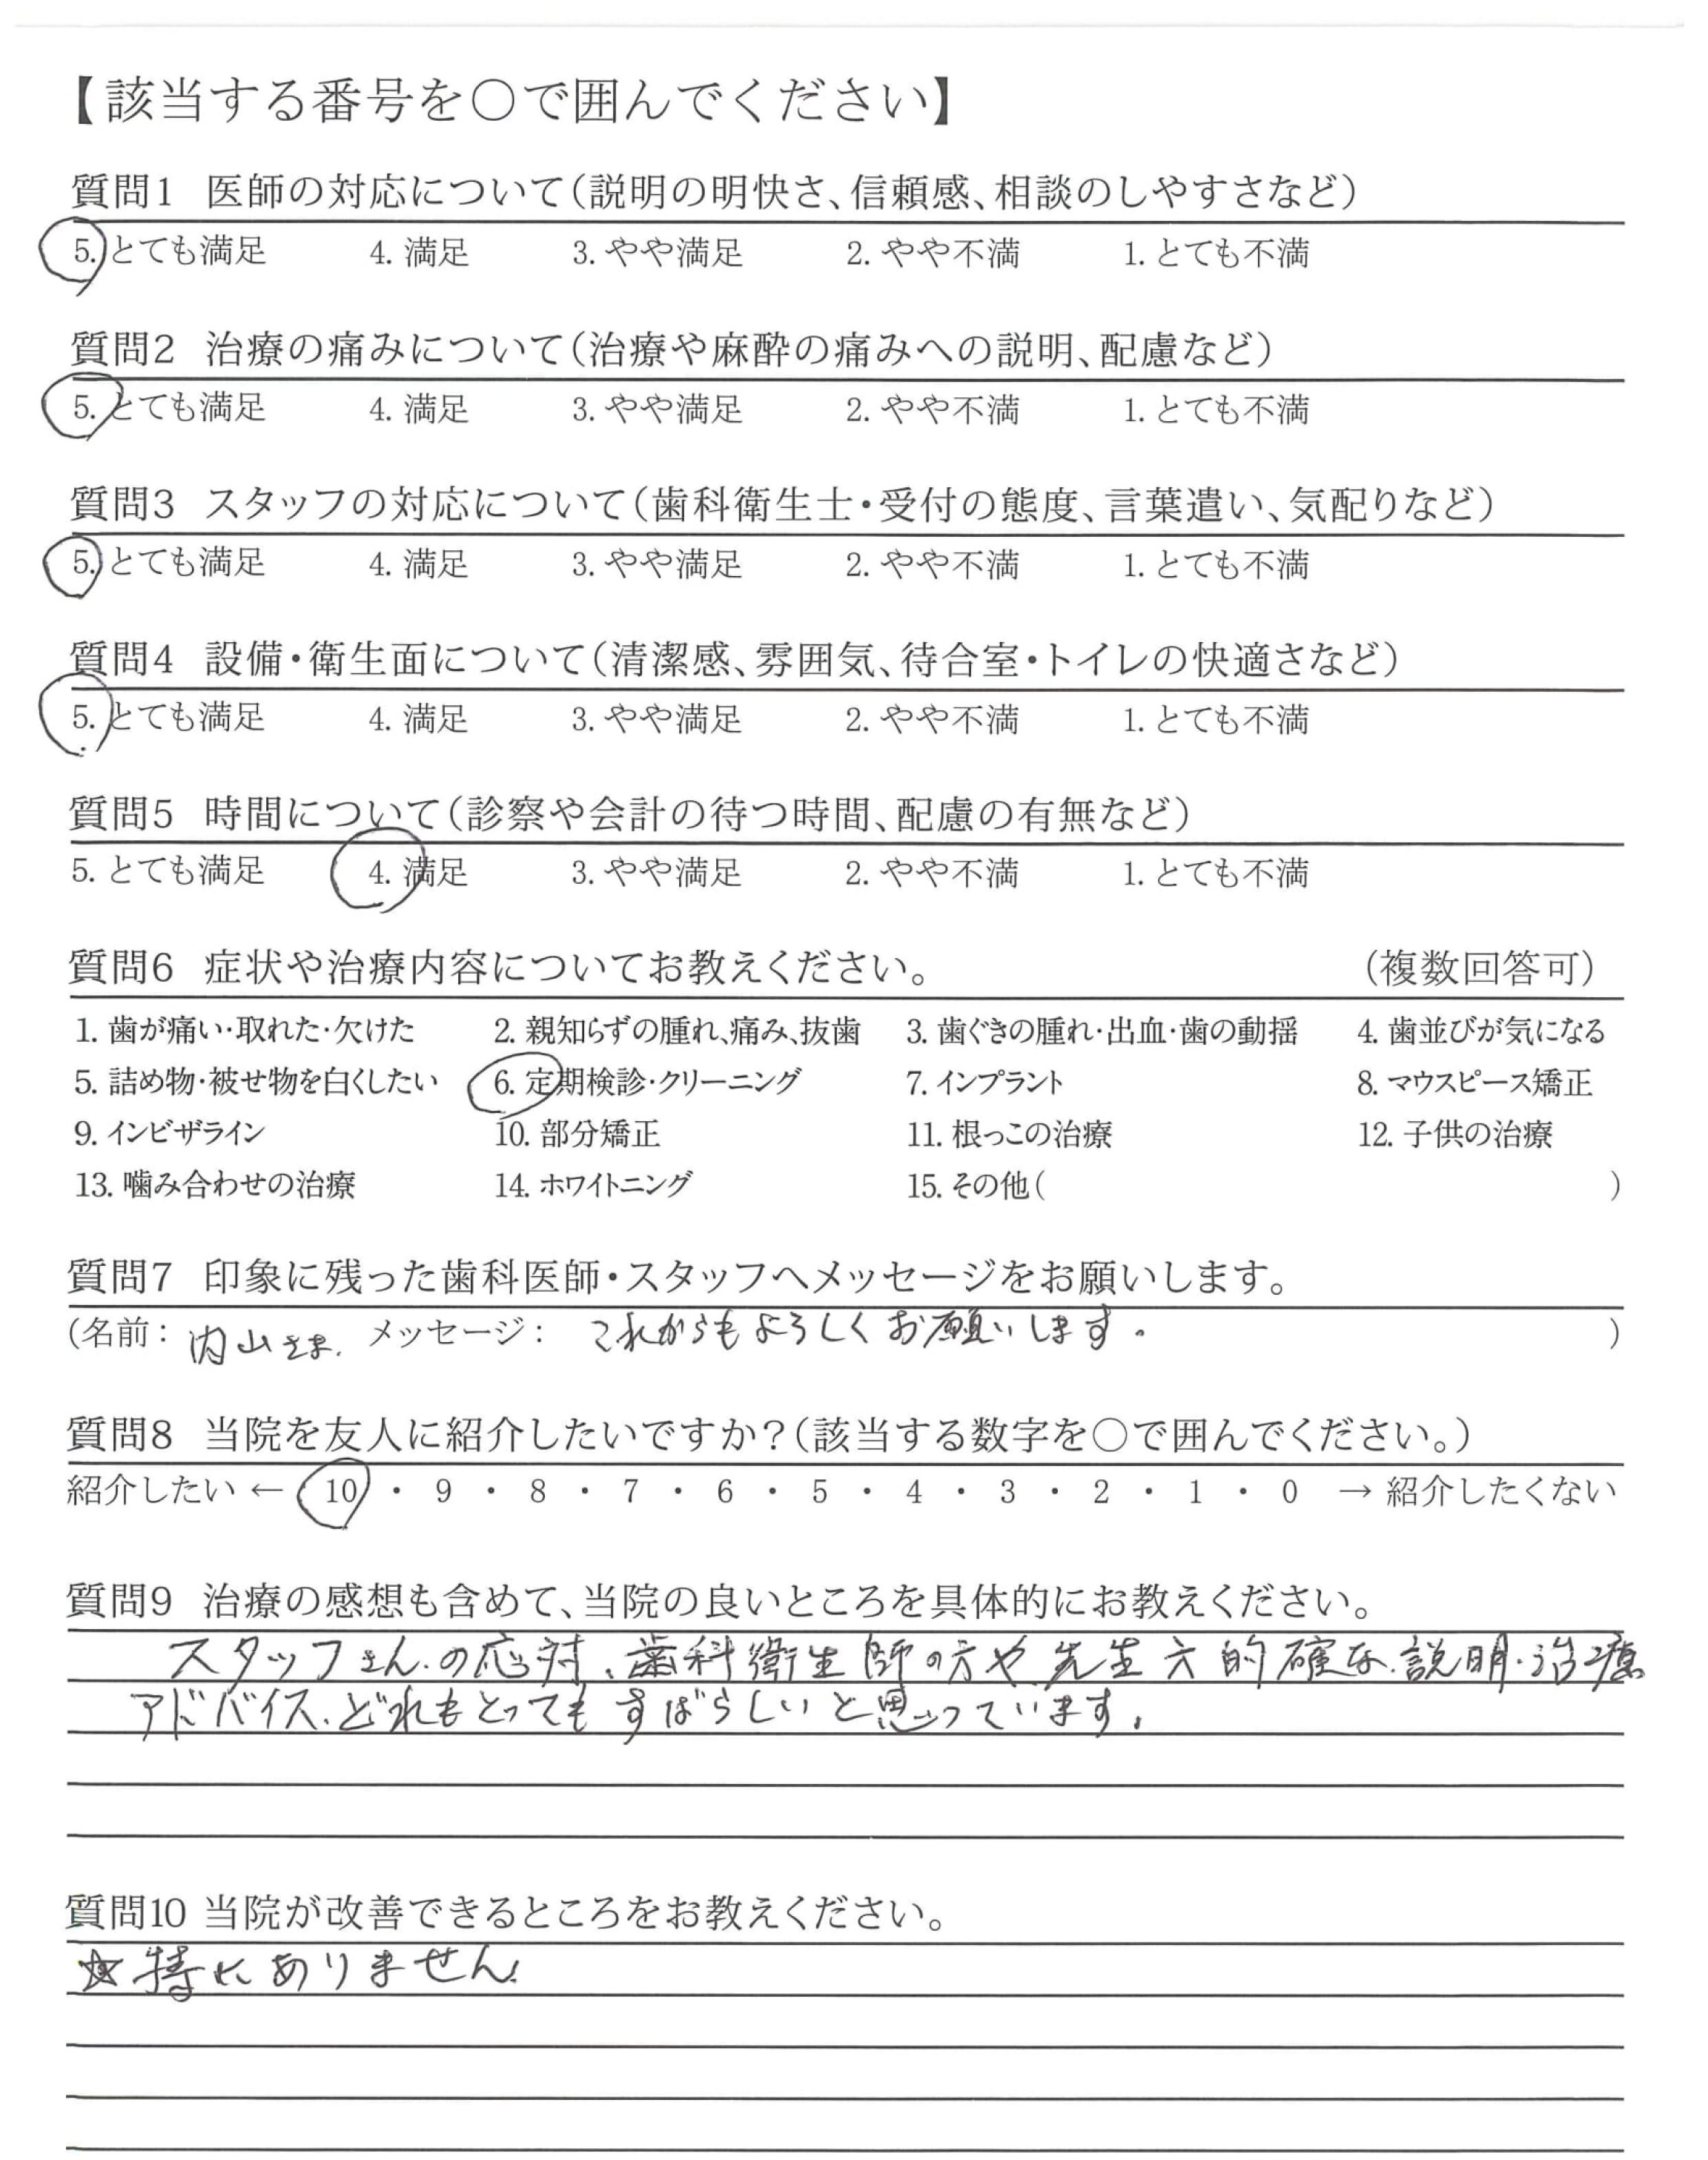 【該当する番号を○で囲んでください】
質問1 医師の対応について(説明の明快さ、信頼感、相談のしやすさなど)
5. とても満足 4. 満足 3. やや満足 2. やや不満 1. とても不満
質問2 治療の痛みについて(治療や麻酔の痛みへの説明、配慮など)
5. とても満足 4. 満足 3. やや満足 2. やや不満 1. とても不満
質問3 スタッフの対応について(歯科衛生士・受付の態度、言葉遣い、気配りなど)
5. とても満足 4. 満足 3. やや満足 2. やや不満 1. とても不満
質問4 設備・衛生面について(清潔感、雰囲気、待合室・トイレの快適さなど)
5. とても満足 4. 満足 3. やや満足 2. やや不満 1. とても不満
質問5 時間について(診察や会計の待つ時間、配慮の有無など)
5. とても満足 4. 満足 3. やや満足 2. やや不満 1. とても不満
質問6 症状や治療内容についてお教えください。 (複数回答可)
1. 歯が痛い・取れた・欠けた 2. 親知らずの腫れ、痛み、抜歯 3. 歯ぐきの腫れ・出血・歯の動揺 4. 歯並びが気になる
5. 詰め物・被せ物を白くしたい 6. 定期検診・クリーニング 7. インプラント 8. マウスピース矯正
9. インビザライン 10. 部分矯正 11. 根っこの治療 12. 子供の治療
13. 噛み合わせの治療 14. ホワイトニング 15. その他( )
質問7 印象に残った歯科医師・スタッフへメッセージをお願いします。
(名前: 内山さま. メッセージ: これからもよろしくお願いします。 )
質問8 当院を友人に紹介したいですか?(該当する数字を○で囲んでください。)
紹介したい ← 10 ・ 9 ・ 8 ・ 7 ・ 6 ・ 5 ・ 4 ・ 3 ・ 2 ・ 1 ・ 0 → 紹介したくない
質問9 治療の感想も含めて、当院の良いところを具体的にお教えください。
スタッフさんの応対、歯科衛生師の方や先生方 的確な説明・治療
アドバイス、どれもとってもすばらしいと思っています。
質問10 当院が改善できるところをお教えください。
☆特にありません!